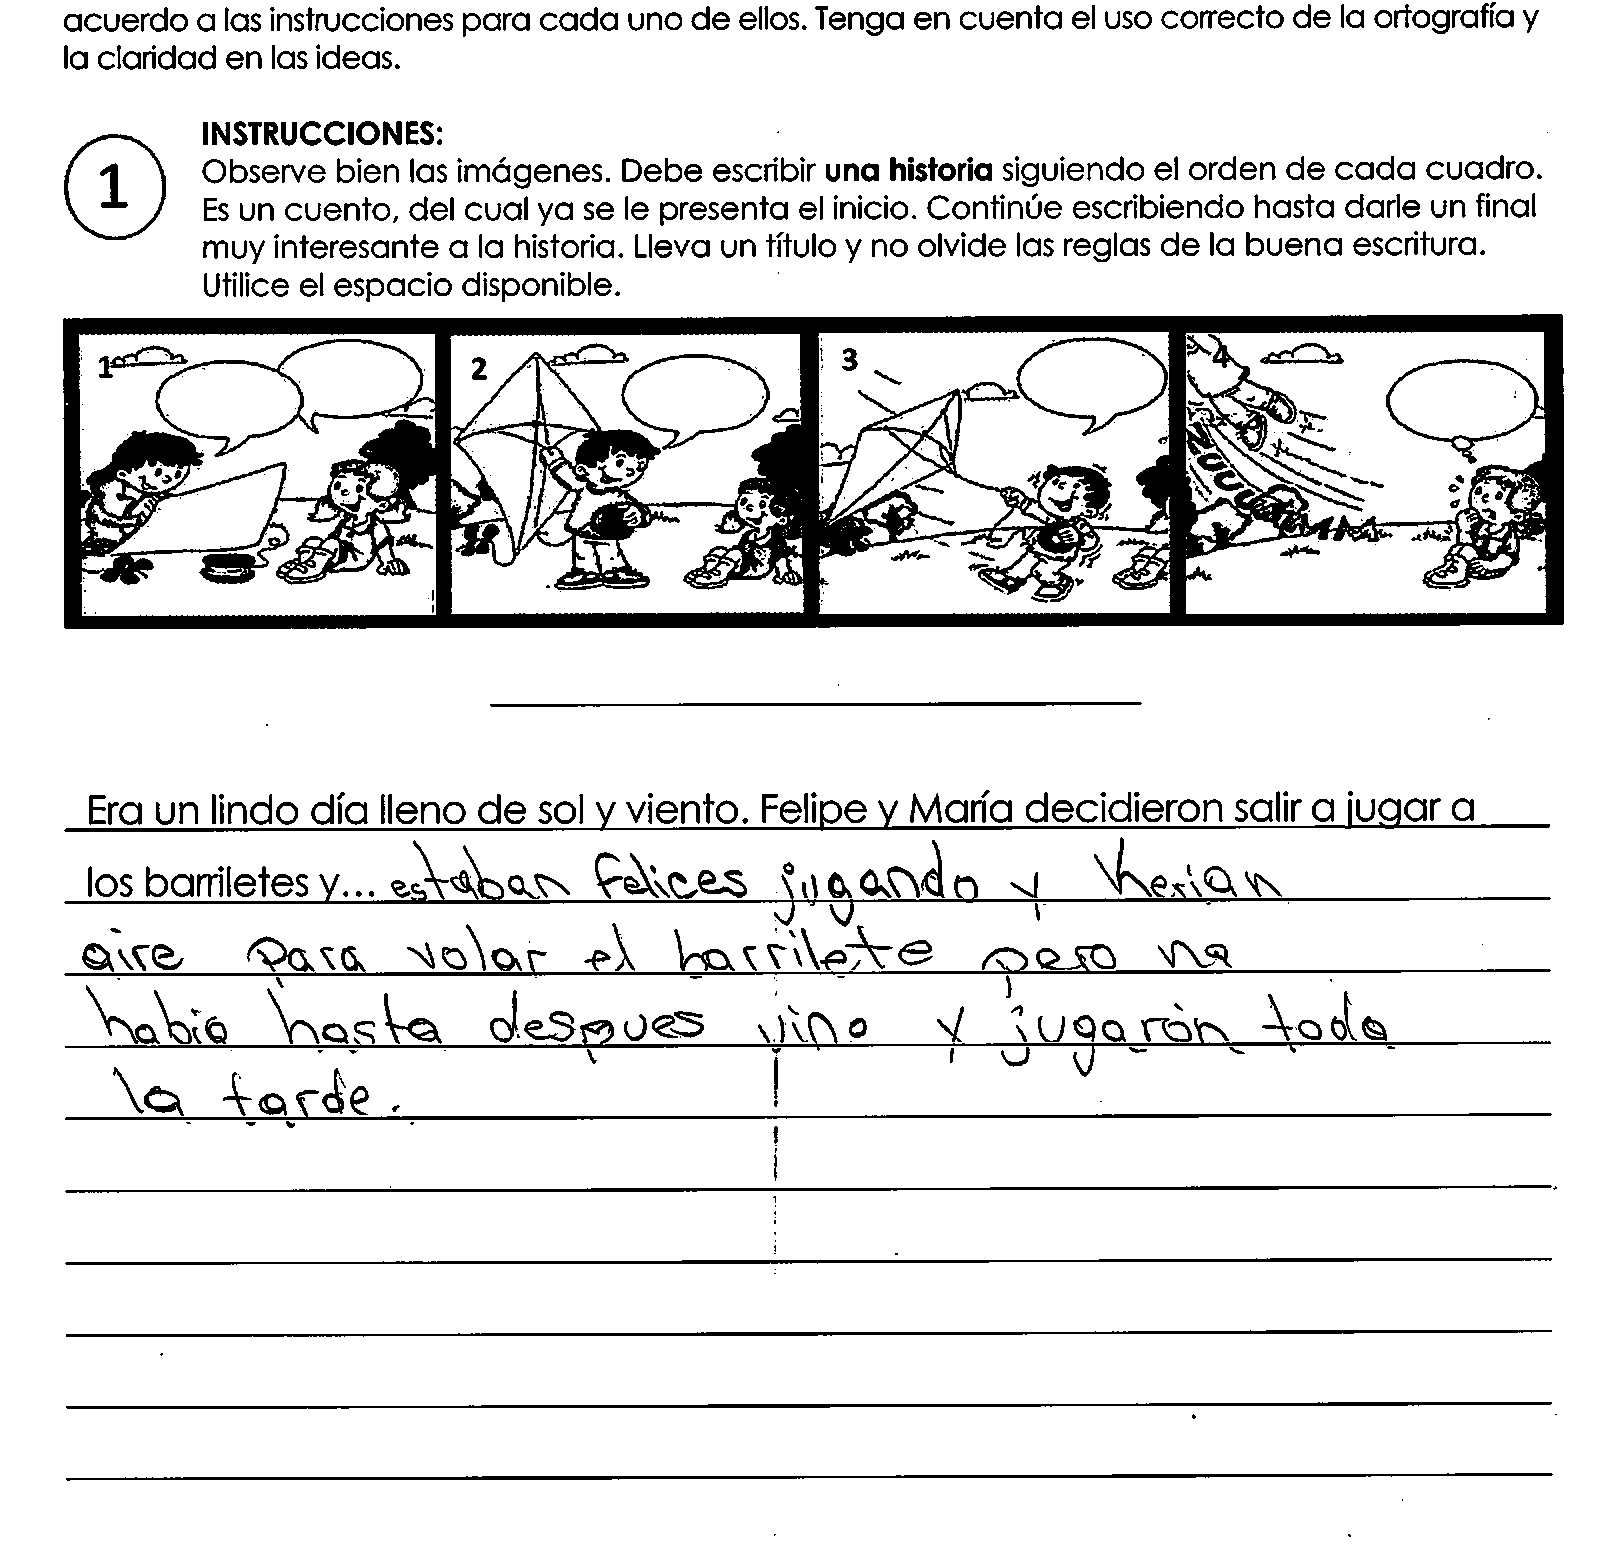 acuerdo a las instrucciones para cada uno de ellos. Tenga en cuenta el uso correcto de la ortografía y
la claridad en las ideas.
1
INSTRUCCIONES:
Observe bien las imágenes. Debe escribir una historia siguiendo el orden de cada cuadro.
Es un cuento, del cual ya se le presenta el inicio. Continúe escribiendo hasta darle un final
muy interesante a la historia. Lleva un título y no olvide las reglas de la buena escritura.
Utilice el espacio disponible.
1 2 3 4
Era un lindo día lleno de sol y viento. Felipe y María decidieron salir a jugar a
los barriletes y... estaban felices jugando y
aire para volar el barrilete pero no
habia hasta despues vino y jugarón toda
la tarde.